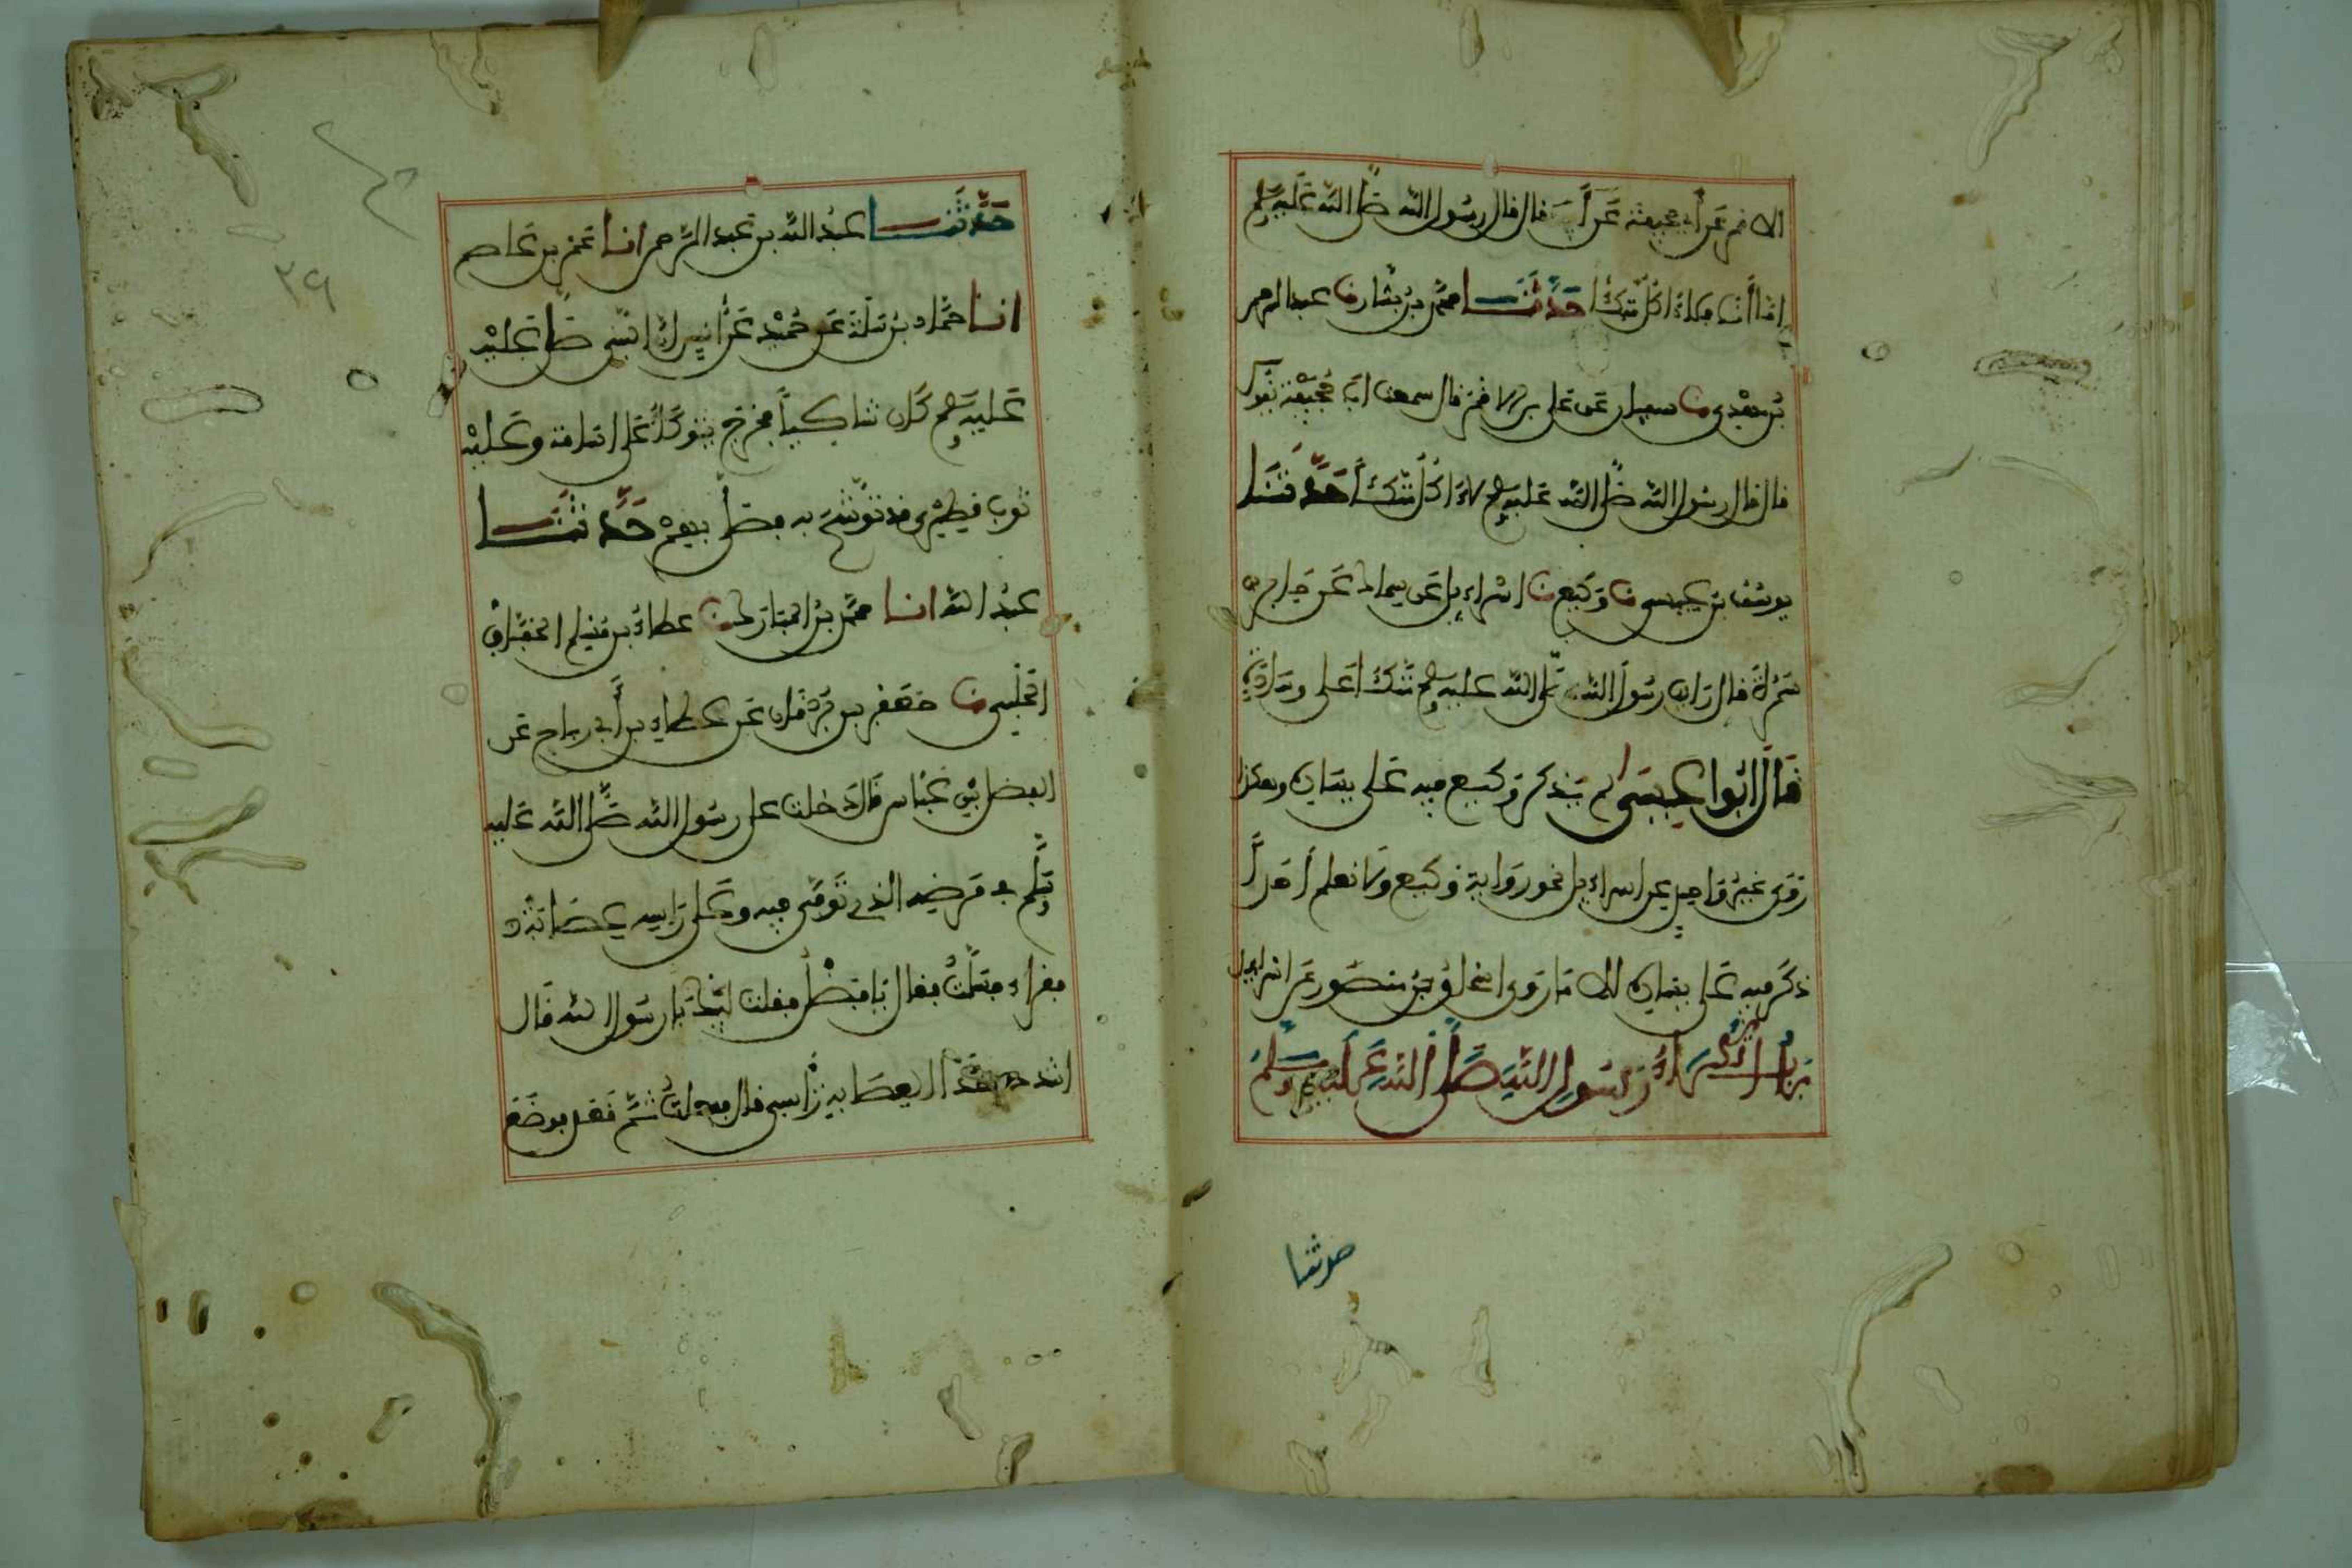 الاقمر عن أبي جحيفة عن أبيه قال قال رسول الله صلى الله عليه وسلم
اما أنا فلا اكل متكئا حدثنا محمد بن بشار نا عبد الرحمن
بن مهدي نا سفيان عن علي بن الاقمر قال سمعت ابا جحيفة يقول
قال قال رسول الله صلى الله عليه وسلم لا اكل متكئا حدثنا
يوسف بن عيسى نا وكيع نا اسراءيل عن سماك عن جابر بن
سمرة قال رايت رسول الله صلى الله عليه وسلم متكئا على وسادة
قال ابوا عيسى لم يذكر وكيع فيه على يساره وهكذا
روى غير واحد عن اسراءيل نحو رواية وكيع ولا نعلم أحدا
ذكر فيه على يساره الا ما روى اسحاق بن منصور عن اسراءيل
باب اتكاء رسول الله صلى الله عليه وسلم
حدثنا
حدثنا عبد الله بن عبد الرحمن انا عمر بن عاصم
انا حماد بن سلمة عن حميد عن أنس ان النبي صلى عليه
عليه وسلم كان شاكيا فخرج يتوكأ على اسامة وعليه
ثوب قطري قد توشح به فصلى بهم حدثنا
عبد الله انا محمد بن المبارك نا عطاء بن مسلم الخفاف
الحلبي نا جعفر بن برقان عن عطاء بن أبي رباح عن
الفضل بن عباس قال دخلت على رسول الله صلى الله عليه
وسلم في مرضه الذي توفي فيه وعلى رأسه عصابة
صفراء فسلمت فقال يا فضل فقلت لبيك يا رسول الله قال
اشدد بهذه العصابة رأسي قال ففعلت ثم قعد فوضع
٢٩